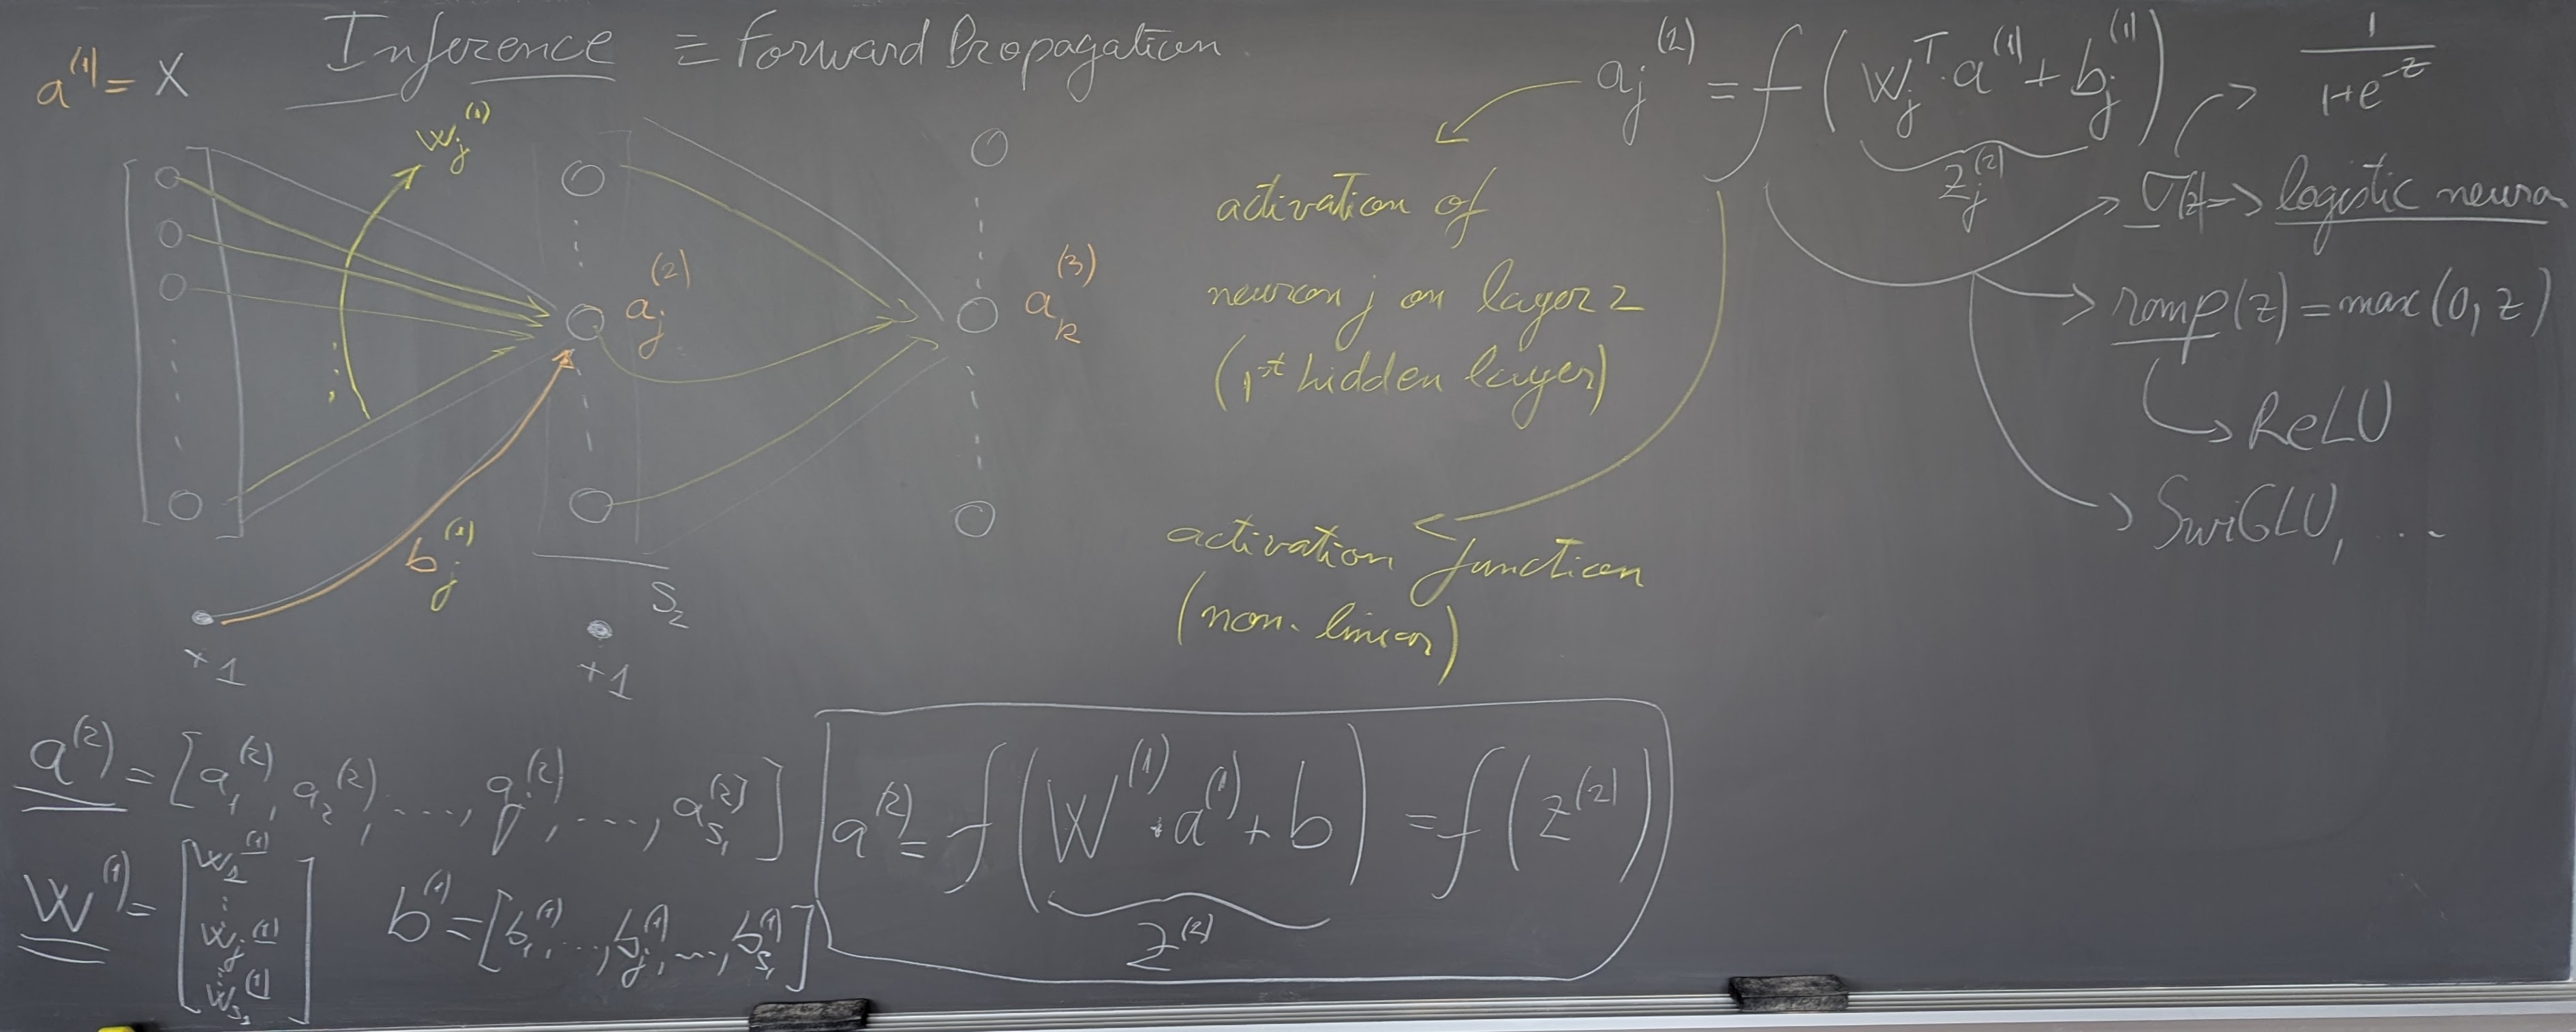 Inference ≡ Forward Propagation
a^(1) = X
w_j^(1)
a_j^(2)
a_k^(3)
b_j^(1)
S_2
+1
+1
a_j^(2) = f(w_j^T · a^(1) + b_j^(1))
z_j^(2)
activation of
neuron j on layer 2
(1st hidden layer)
activation function
(non-linear)
1/(1+e^-z)
σ(z) -> logistic neuron
ramp(z) = max(0, z)
ReLU
SwiGLU, ...
a^(2) = [a_1^(2), a_2^(2), ..., a_j^(2), ..., a_S1^(2)]
W^(1) = [w_1^(1) ⋮ w_j^(1) ⋮ w_S1^(1)]
b^(1) = [b_1^(1), ..., b_j^(1), ..., b_S1^(1)]
a^(2) = f(W^(1) · a^(1) + b) = f(z^(2))
z^(2)